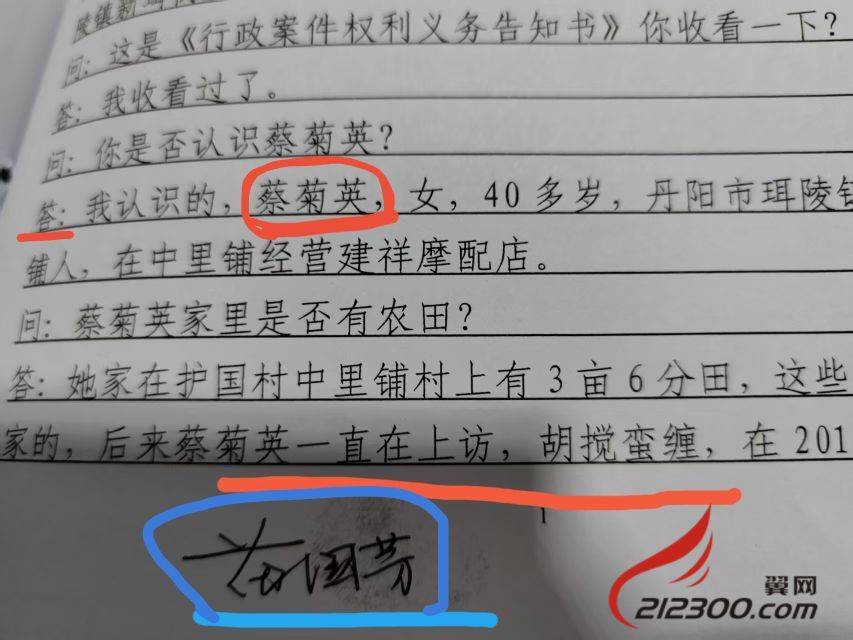 陵镇新
问：这是《行政案件权利义务告知书》你收看一下？
答：我收看过了。
问：你是否认识蔡菊英？
答：我认识的，蔡菊英，女，40多岁，丹阳市珥陵镇
铺人，在中里铺经营建祥摩配店。
问：蔡菊英家里是否有农田？
答：她家在护国村中里铺村上有3亩6分田，这些
家的，后来蔡菊英一直在上访，胡搅蛮缠，在201
1
国芳
翼网
212300.com